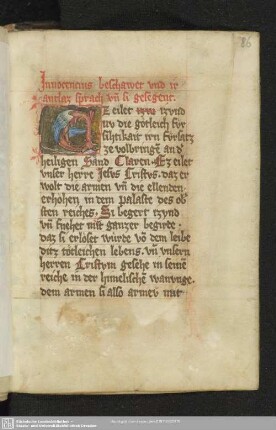 86
Innocencius beschawet vnd ir
antlaz sprach vñ si gesegent.
E eilet tzvnd
nv die götleich fvr
sichtikait irn fvrsatz
ze volbringen an d
heiligen Sand Claren. Ez eilet
vnser herre Jesvs Cristvs. daz er
wolt die armen vñ die ellenden
erhöhen in dem palaste des ob
sten reiches. Si begert tzvnd
vñ svchet mit ganczer begirde.
daz si erloset würde võ dem leibe
ditz tötleichen lebens. vñ vnsern
herren Cristvm gesehe in seinē
reiche in der himelischē wanvnge.
dem armen si also armev mit